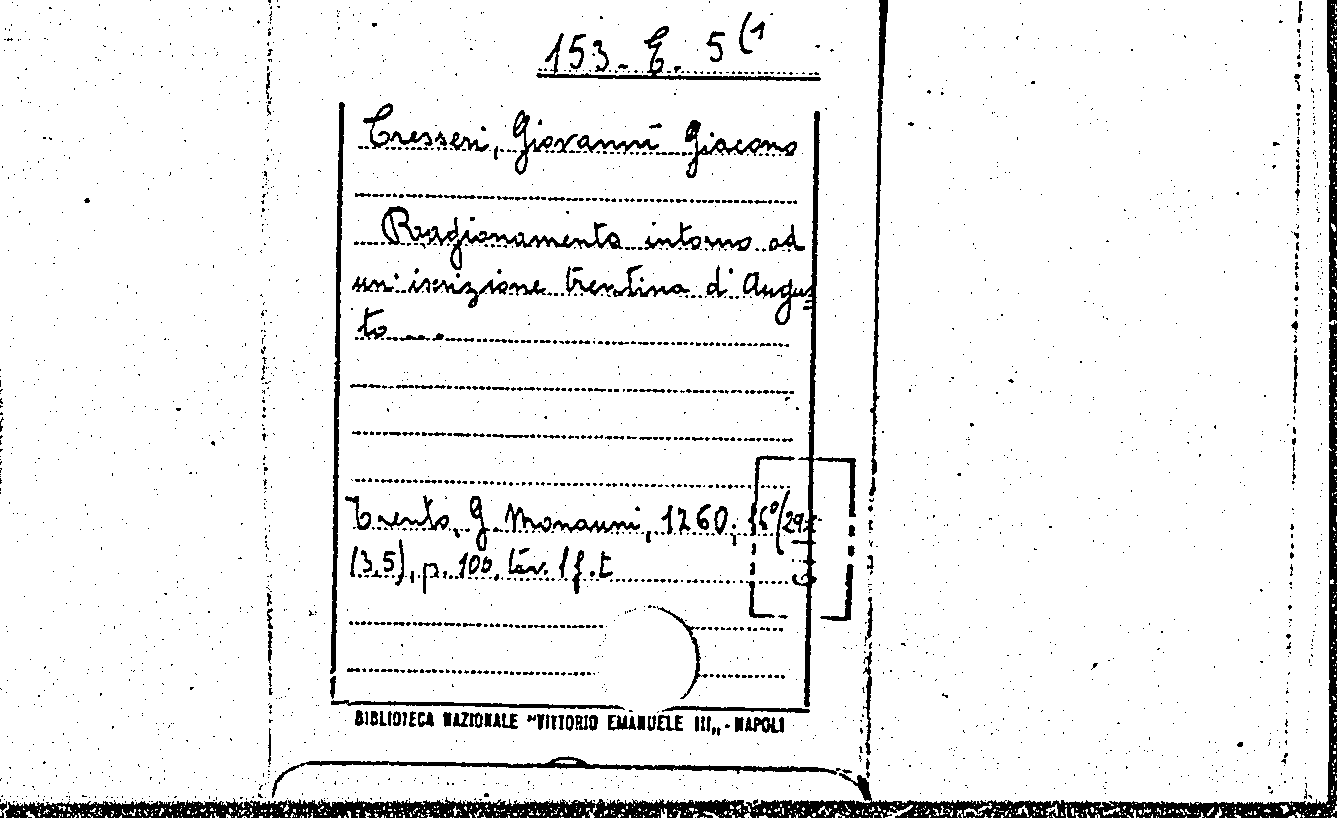 153. E. 5 (1
Cresseri, Giovanni Giacomo
Ragionamento intorno ad
un' iscrizione trentina d' Augus
to ....
Trento, G. Monauni, 1760; 16° (29x
(3,5), p. 100, tav. 1 f. t
BIBLIOTECA NAZIONALE "VITTORIO EMANUELE III„ - NAPOLI